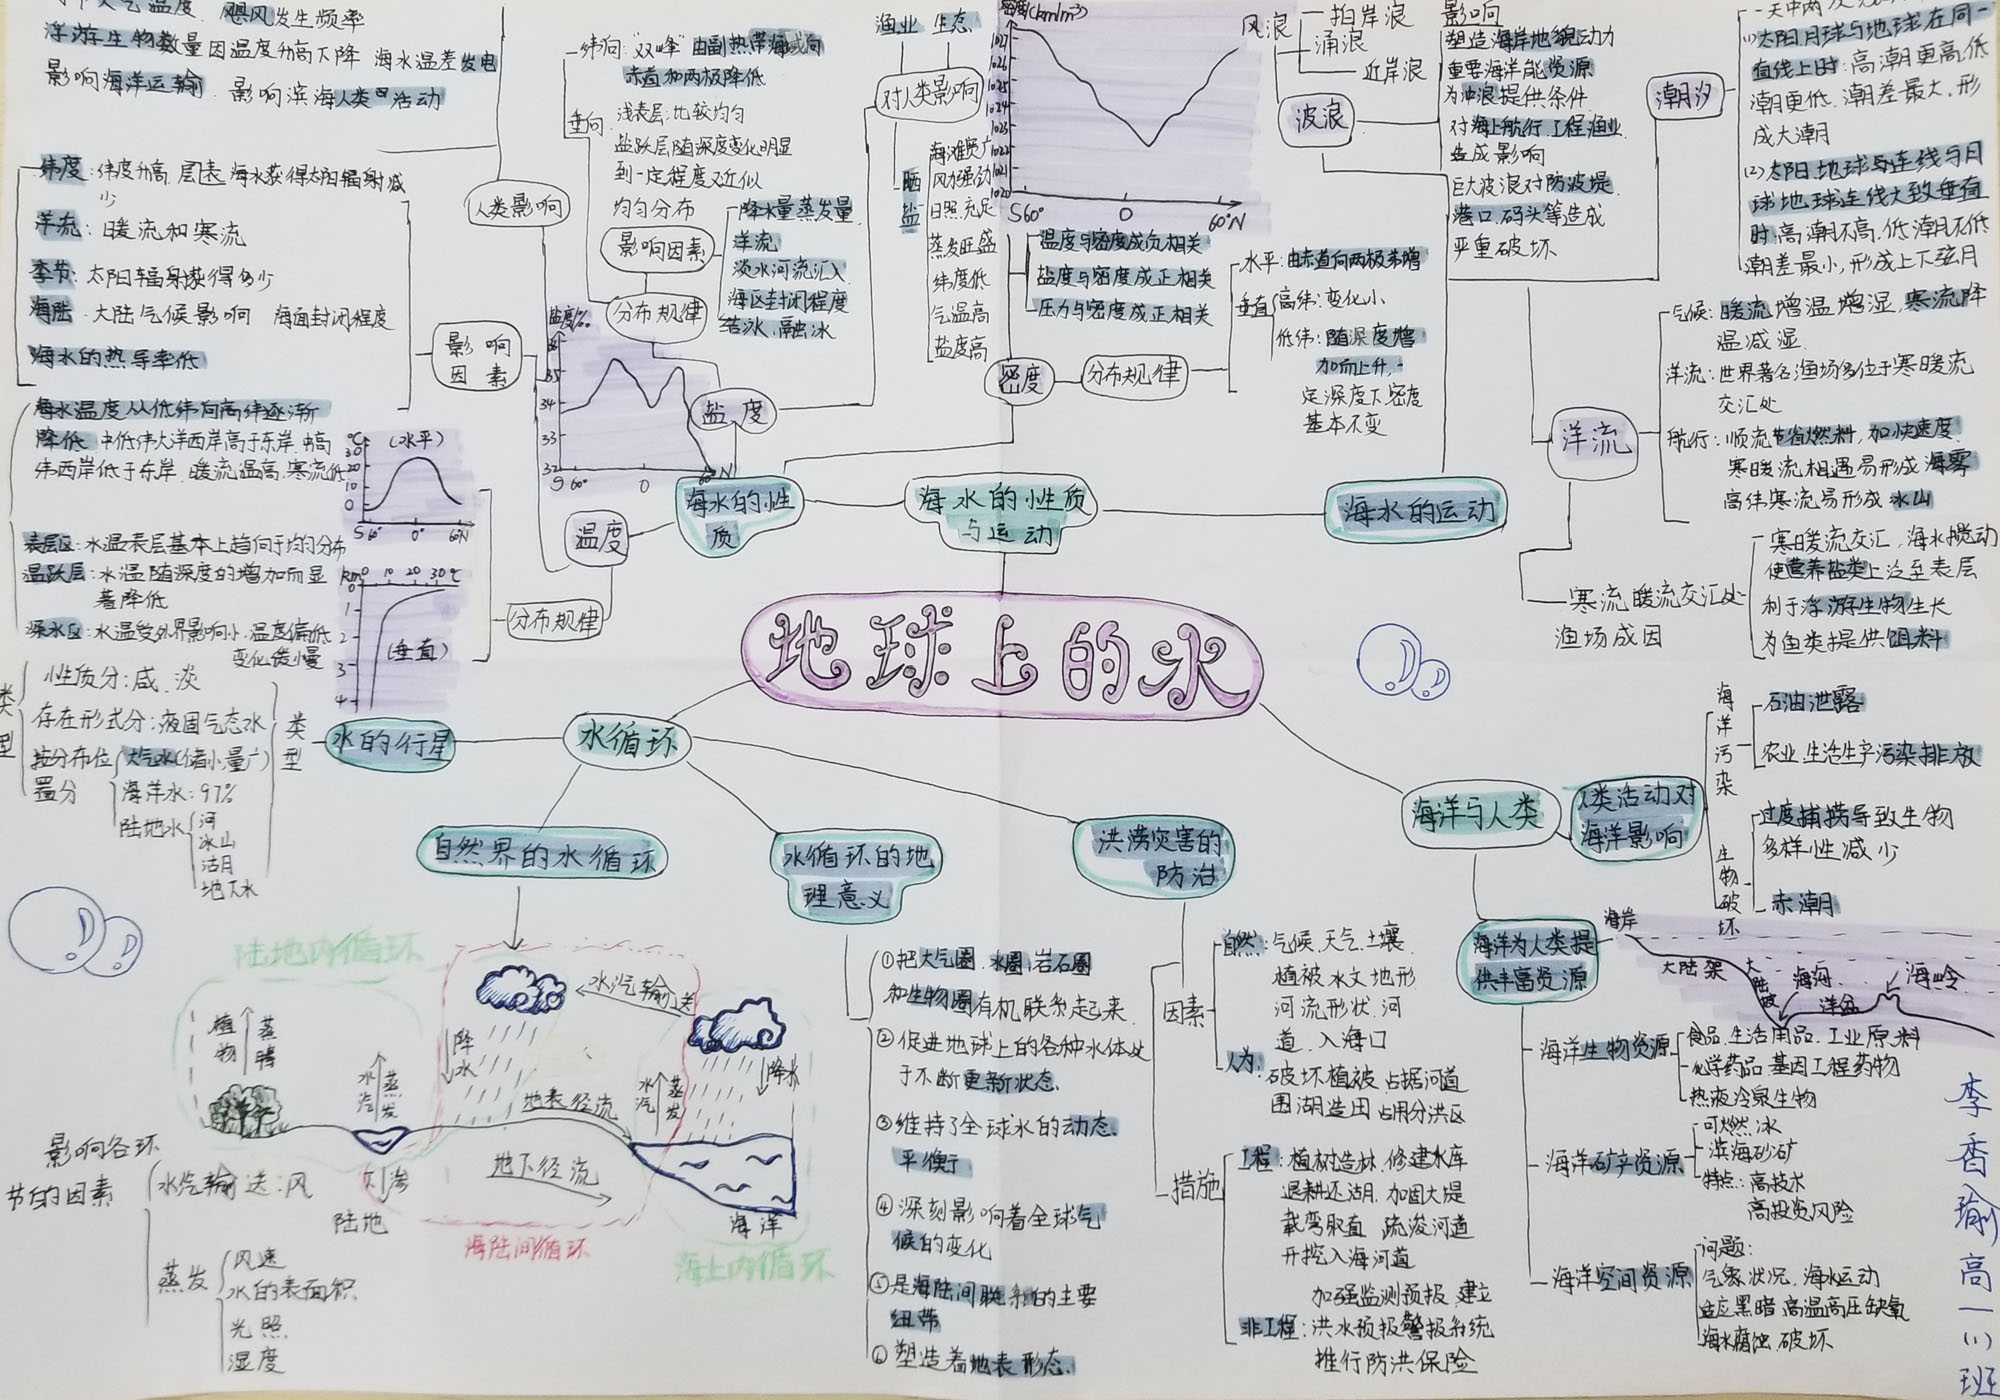 大气温度、飓风发生频率
浮游生物数量因温度升高下降 海水温差发电
影响海洋运输、影响滨海人类活动
人类影响
纬度:纬度升高,层表海水获得太阳辐射减
少
洋流:暖流和寒流
季节:太阳辐射获得多少
海陆:大陆气候影响 海面封闭程度
海水的热导率低
影响
因素
海水温度从低纬向高纬逐渐
降低 中低纬大洋西岸高于东岸,中高
纬西岸低于东岸,暖流温高,寒流低
表层区:水温表层基本上趋向于均匀分布
温跃层:水温随深度的增加而显
著降低
深水区:水温受外界影响小,温度偏低
变化缓慢
℃
(水平)
30
20
10
0
S 60° 0° 60°N
km 0 10 20 30℃
1
2
3
4
(垂直)
分布规律
温度
纬向:“双峰”由副热带海域向
赤道和两极降低
垂向
浅表层:比较均匀
盐跃层随深度变化明显
到一定程度又近似
均匀分布
影响因素
降水量蒸发量
洋流
淡水河流汇入
海区封闭程度
结冰、融冰
分布规律
盐度/‰
36
35
34
33
32
S 60° 0 60°N
盐度
渔业 生态
对人类影响
晒盐
海滩宽广
风力强劲
日照充足
蒸发旺盛
纬度低
气温高
盐度高
密度(km/m³)
1027
1026
1025
1024
1023
1022
1021
1020
S60° 0 60°N
温度与密度成负相关
盐度与密度成正相关
压力与密度成正相关
密度
分布规律
水平:由赤道向两极来增
垂直
高纬:变化小
低纬:随深度增
加而上升,一
定深度下密度
基本不变
海水的性
质
海水的性质
与运动
海水的运动
风浪
拍岸浪
涌浪
近岸浪
波浪
影响
塑造海岸地貌动力
重要海洋能资源
为冲浪提供条件
对海上航行、工程渔业
造成影响
巨大波浪对防波堤
港口、码头等造成
严重破坏
潮汐
一天中两次
(1)太阳月球与地球在同一
直线上时:高潮更高,低
潮更低,潮差最大,形
成大潮
(2)太阳、地球与连线与月
球地球连线大致垂直
时:高潮不高,低潮不低
潮差最小,形成上下弦月
洋流
气候:暖流增温增湿,寒流降
温减湿
洋流:世界著名渔场多位于寒暖流
交汇处
航行:顺流节省燃料,加快速度
寒暖流相遇易形成海雾
高纬寒流易形成冰山
寒流暖流交汇处
渔场成因
寒暖流交汇,海水搅动
使营养盐类上泛至表层
利于浮游生物生长
为鱼类提供饵料
地球上的水
类型
性质分:咸、淡
存在形式分:液固气态水
按分布位
置分
大气水(储小,量广)
海洋水:97%
陆地水
河
冰山
沽月
地下水
类型
水的行星
水循环
自然界的水循环
水循环的地
理意义
洪涝灾害的
防治
海洋与人类
人类活动对
海洋影响
海洋污染
石油泄露
农业、生活生产污染排放
生物破坏
过度捕捞导致生物
多样性减少
赤潮
海洋为人类提
供丰富资源
海岸
大陆架
大陆坡
海沟
洋盆
海岭
海洋生物资源
食品、生活用品、工业原料
化学药品、基因工程药物
热液冷泉生物
海洋矿产资源
可燃冰
滨海砂矿
特点:高技术
高投资风险
海洋空间资源
问题:
气象状况、海水运动
适应黑暗、高温高压缺氧
海水腐蚀、破坏
陆地内循环
植物蒸腾
水汽蒸发
下渗
陆地
降水
水汽输送
地表径流
地下径流
水汽蒸发
降水
海洋
海陆间循环
海上内循环
影响各环
节的因素
水汽输送:风
蒸发
风速
水的表面积
光照
湿度
①把大气圈、水圈、岩石圈
和生物圈有机联系起来
②促进地球上的各种水体处
于不断更新状态
③维持了全球水的动态
平衡
④深刻影响着全球气
候的变化
⑤是海陆间联系的主要
纽带
⑥塑造着地表形态
因素
自然:气候、天气、土壤
植被、水文、地形
河流形状、河
道、入海口
人为:
破坏植被、占据河道
围湖造田、占用分洪区
措施
工程:植树造林、修建水库
退耕还湖、加固大堤
裁弯取直、疏浚河道
开挖入海河道
加强监测预报,建立
非工程:洪水预报警报系统
推行防洪保险
李香瑜高一(1)班